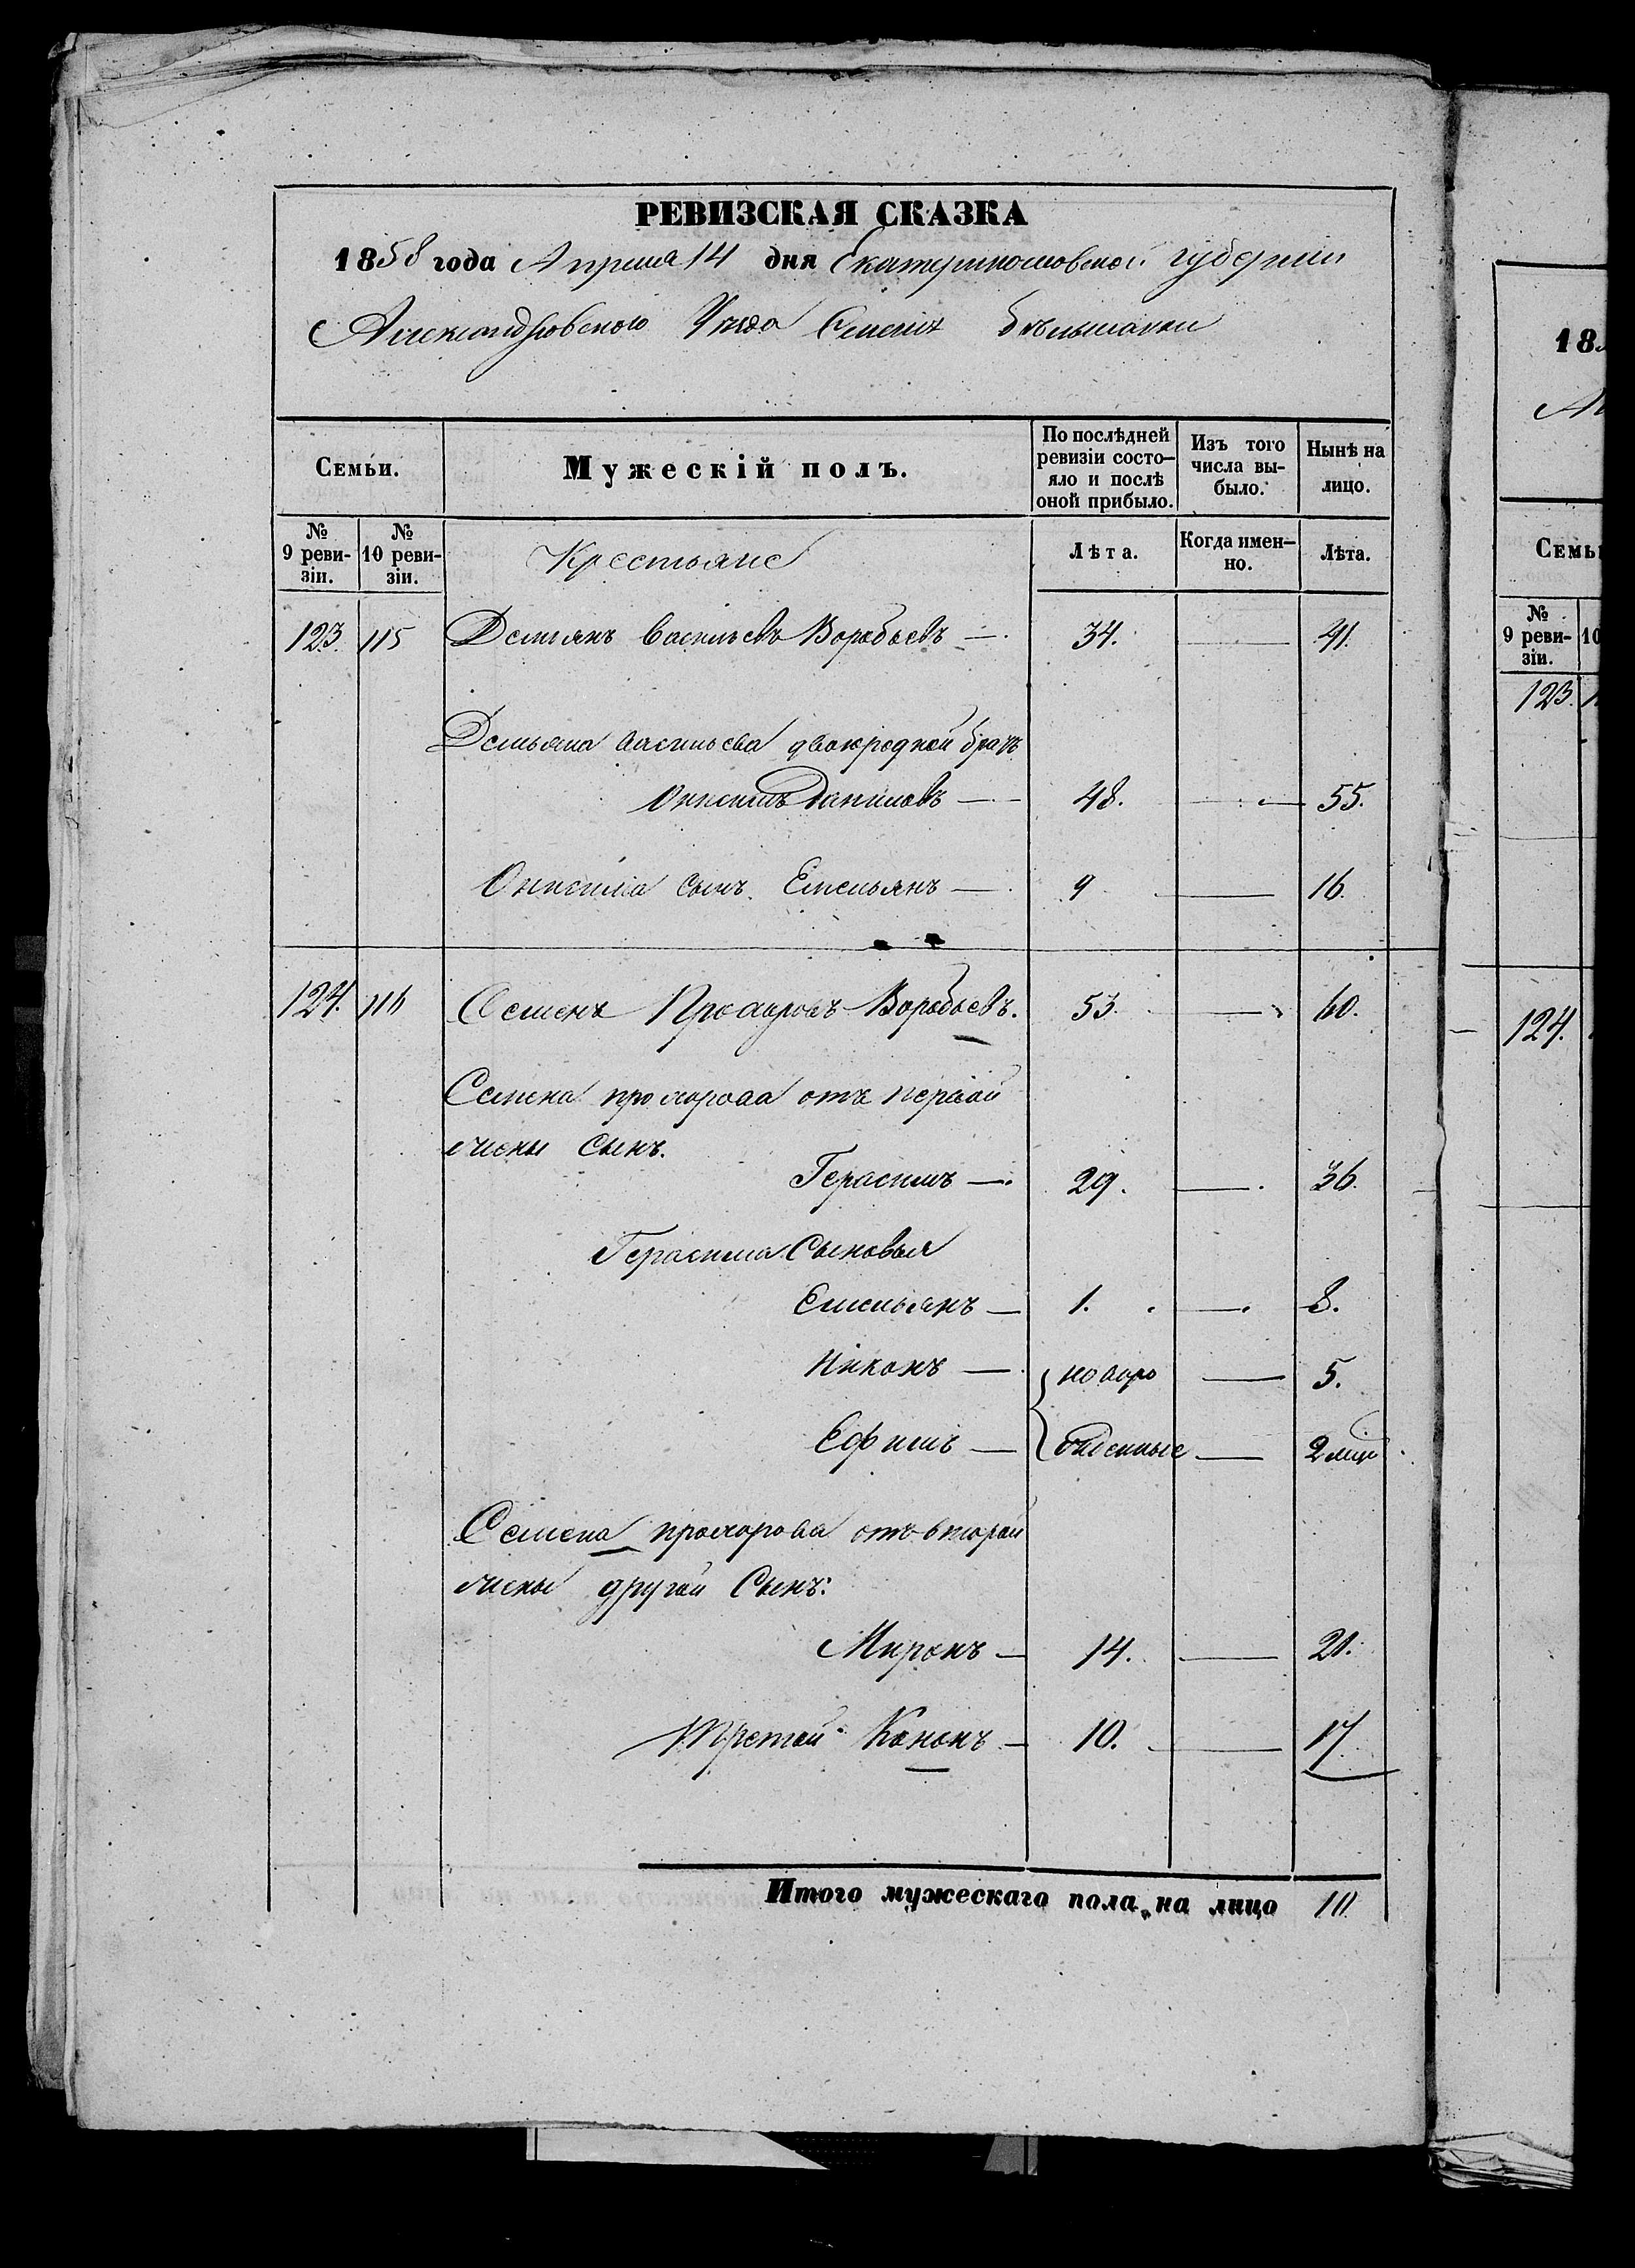 РЕВИЗСКАЯ СКАЗКА
1858 года Апреля 14 дня Екатеринославской губерніи
Александровского Уезда Селенія Белманки
Семьи.
Мужескій полъ.
По послѣдней ревизіи состо-
яло и послѣ
оной прибыло.
Изъ того
числа вы-
было.
Нынѣ на
лицо.
№
9 реви-
зіи.
№
10 реви-
зіи.
Крестьяне
Лѣта.
Когда имен-
но.
Лѣта.
123. 115 Демьянъ Васильевъ Воробьевъ — 34. — 41.
Демьяна васильева двоюродной братъ
Онисимъ Даниловъ — 48. — 55.
Онисима сынъ Емельянъ — 9 — 16.
124. 116 Семенъ Прохоровъ Воробьевъ. 53. — 60.
Семена прохорова отъ первой
жены Сынъ.
Герасимъ — 29. — 36.
Герасима Сыновья
Емельянъ — 1. — 8.
Никонъ — новоро — 5.
Ефимъ — жденные — 2 мцо
Семена прохорова отъ второй
жены другой Сынъ:
Миронъ — 14. — 21.
Третей Кононъ — 10. — 17
Итого мужескаго пола на лицо 10
18
Семьи
№
9 реви-
зіи.
10
123.
124.